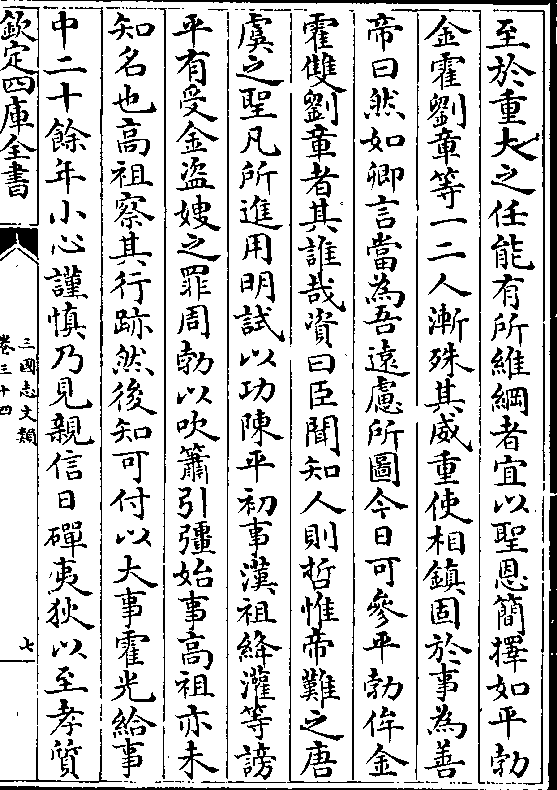 至於重大之任能有所維綱者宜以聖恩簡擇如平勃
金霍劉章等一二人漸殊其威重使相鎮固於事為善
帝曰然如卿言當為吾遠慮所圖今日可參平勃侔金
霍雙劉章者其誰哉資曰臣聞知人則哲惟帝難之唐
虞之聖凡所進用明試以功陳平初事漢祖絳灌等謗
平有受金盜嫂之罪周勃以吹簫引彊始事高祖亦未
知名也高祖察其行跡然後知可付以大事霍光給事
中二十餘年小心謹慎乃見親信日磾夷狄以至孝質
欽定四庫全書
三國志文類
卷三十四
七